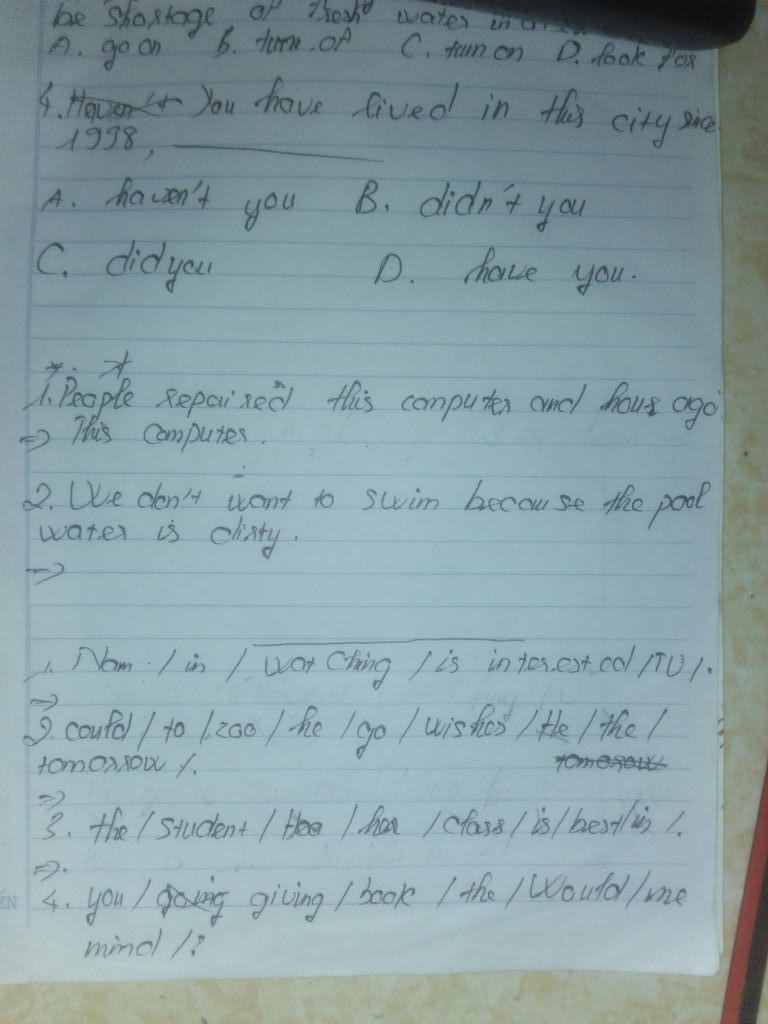 be shortage of fresh water in
A. go on B. turn of C. turn on D. look for
4. Haven't You have lived in this city since
1998, ___
A. haven't you B. didn't you
C. did you D. have you.
1. People repaired this computer and hour ago
=> This computer.
2. We don't want to swim because the pool
water is dirty.
=>
1. Nam / in / watching / is interested / TV / .
=>
2 could / to / zoo / he / go / wishes / He / the /
tomorrow / . tomorow
=>
3. the / student / Hoa / her / class / is / best / in / .
=> .
4. you / going giving / book / the / Would / me
mind / ?